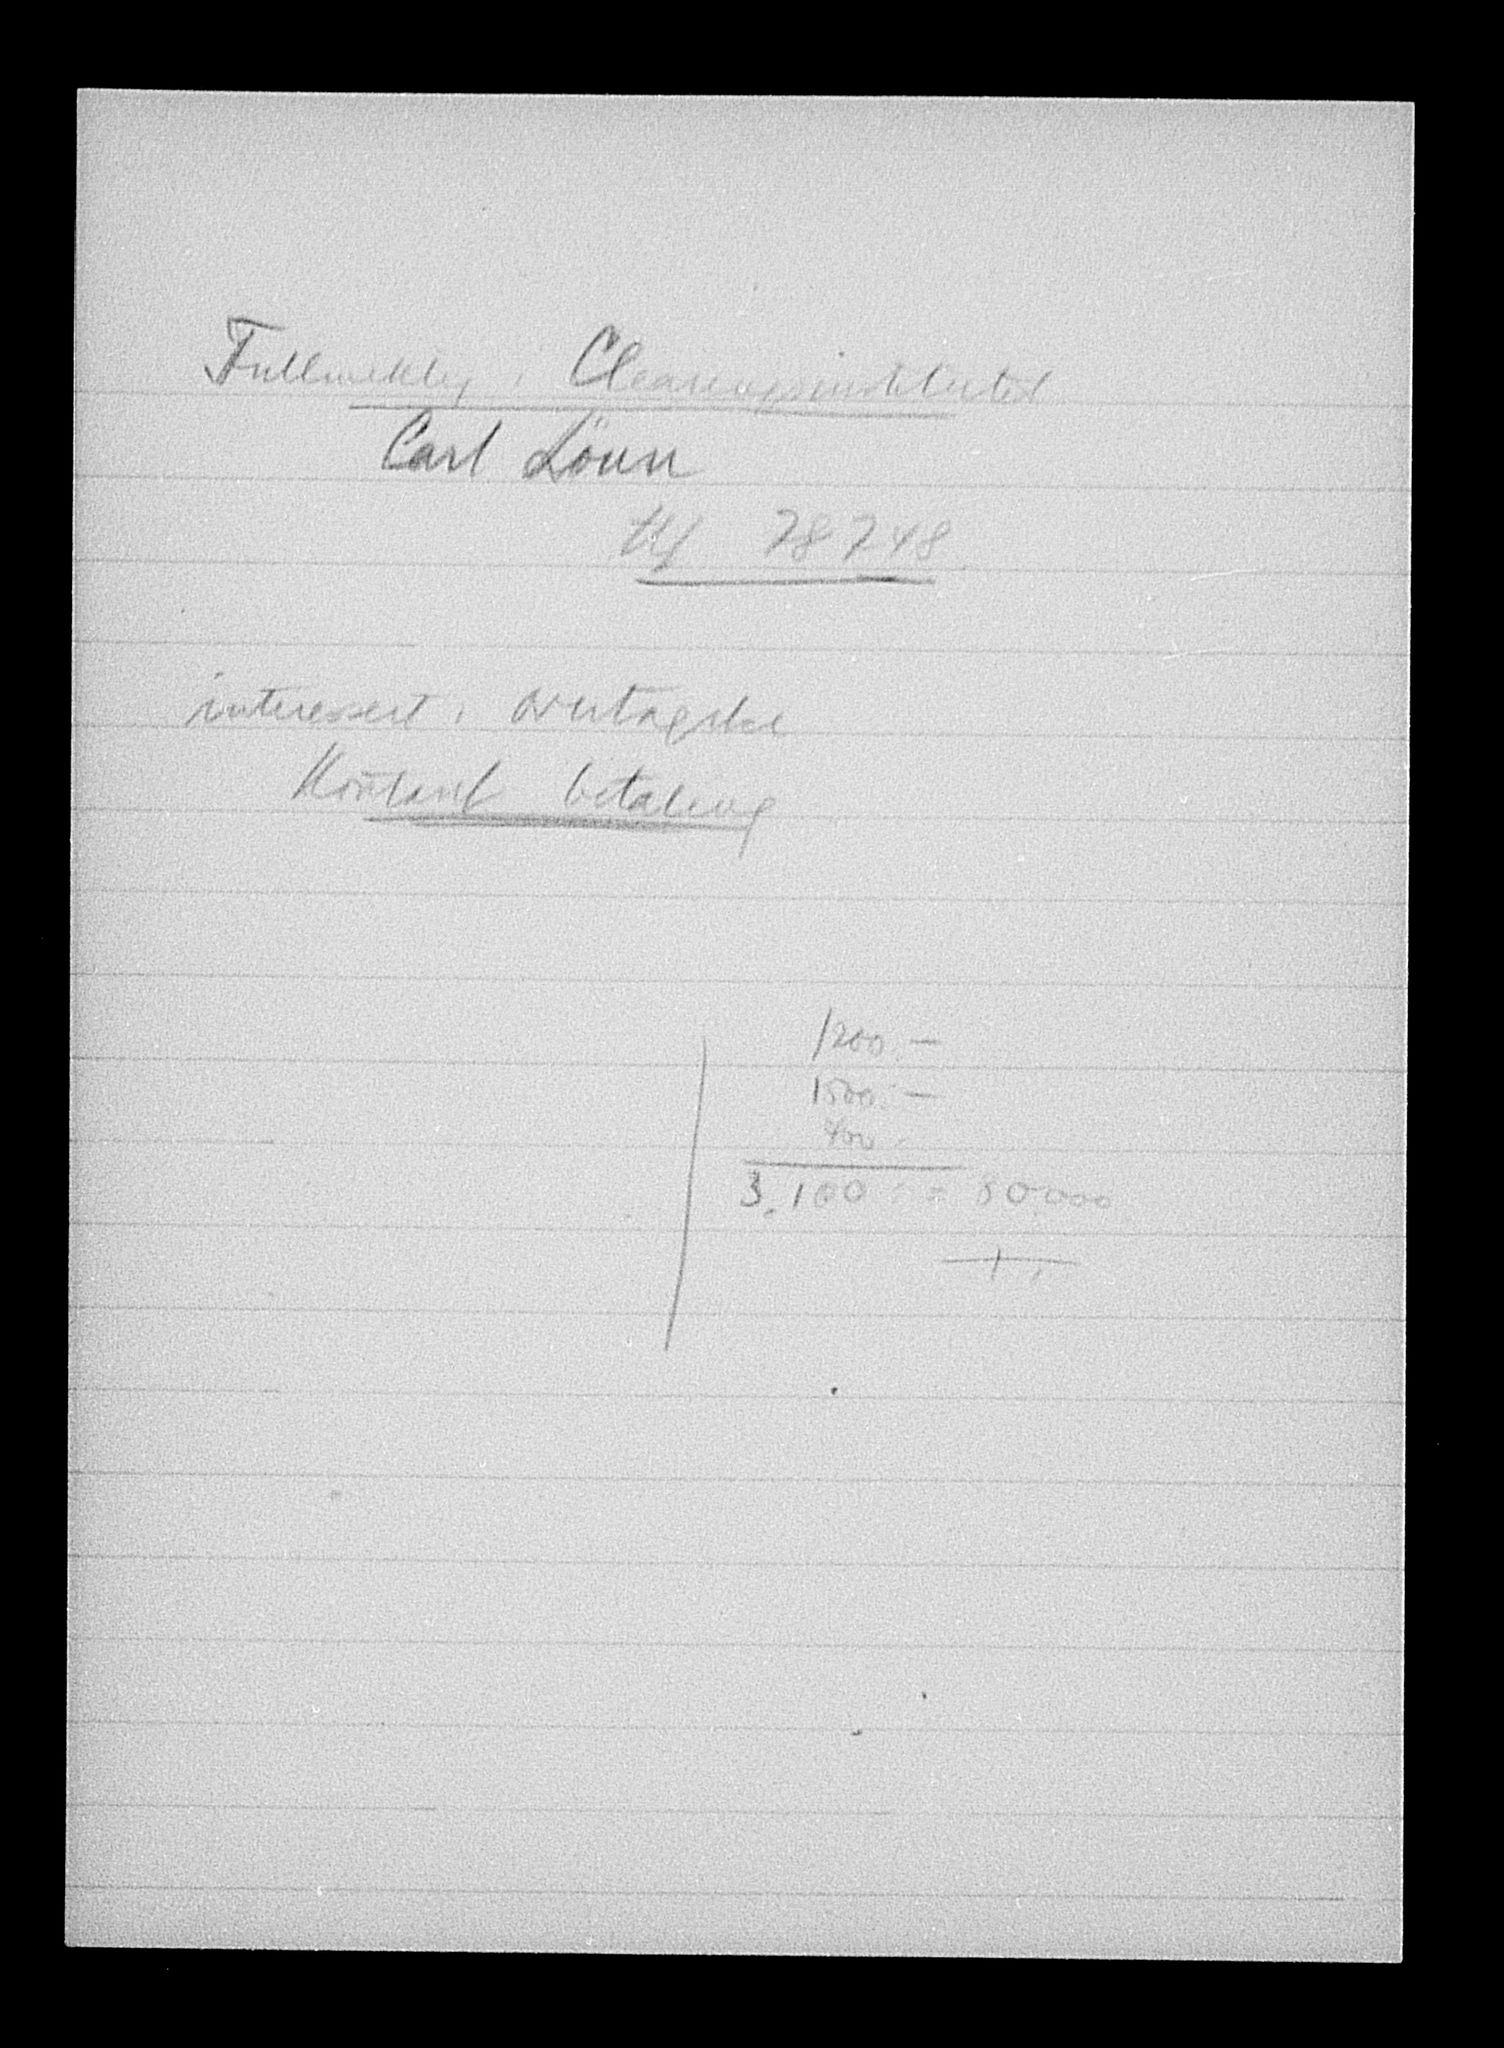 Fullmektig i Clearinginstituttet
Carl Löun
tlf 78748
interessert i overtagelse
Kontant betaling
1200.—
1500.—
400.-
3.100 : = 80.000